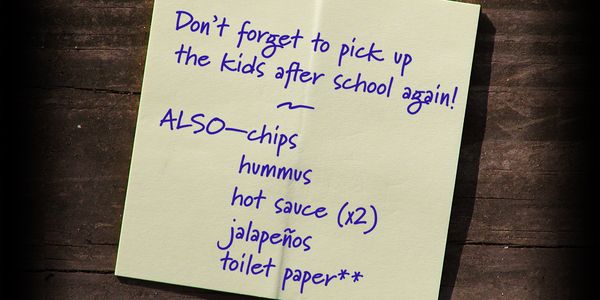 Don't forget to pick up
the kids after school again!
~
ALSO—chips
hummus
hot sauce (x2)
jalapeños
toilet paper**